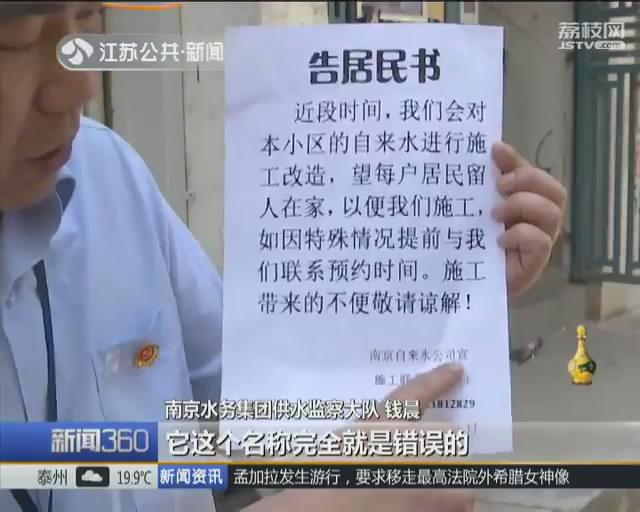 江苏公共·新闻
荔枝网
JSTV.com
告居民书
近段时间，我们会对
本小区的自来水进行施
工改造，望每户居民留
人在家，以便我们施工，
如因特殊情况提前与我
们联系预约时间。施工
带来的不便敬请谅解！
南京自来水公司宣
施工
1812829
南京水务集团供水监察大队 钱晨
新闻360
它这个名称完全就是错误的
泰州 19.9℃ 新闻资讯 孟加拉发生游行，要求移走最高法院外希腊女神像